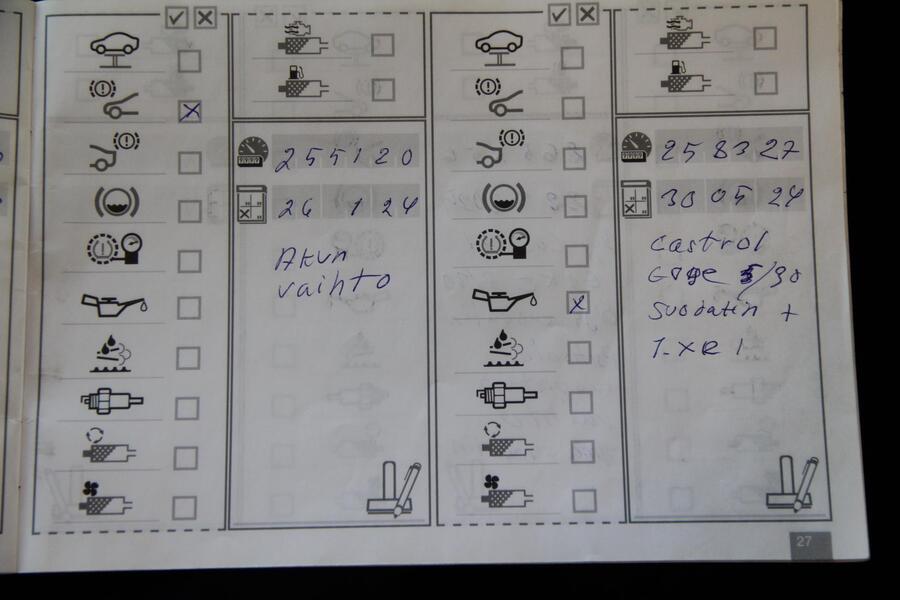 255120
26 1 24
Akun
vaihto
258327
30 05 24
Castrol
5/30
Suodatin +
27